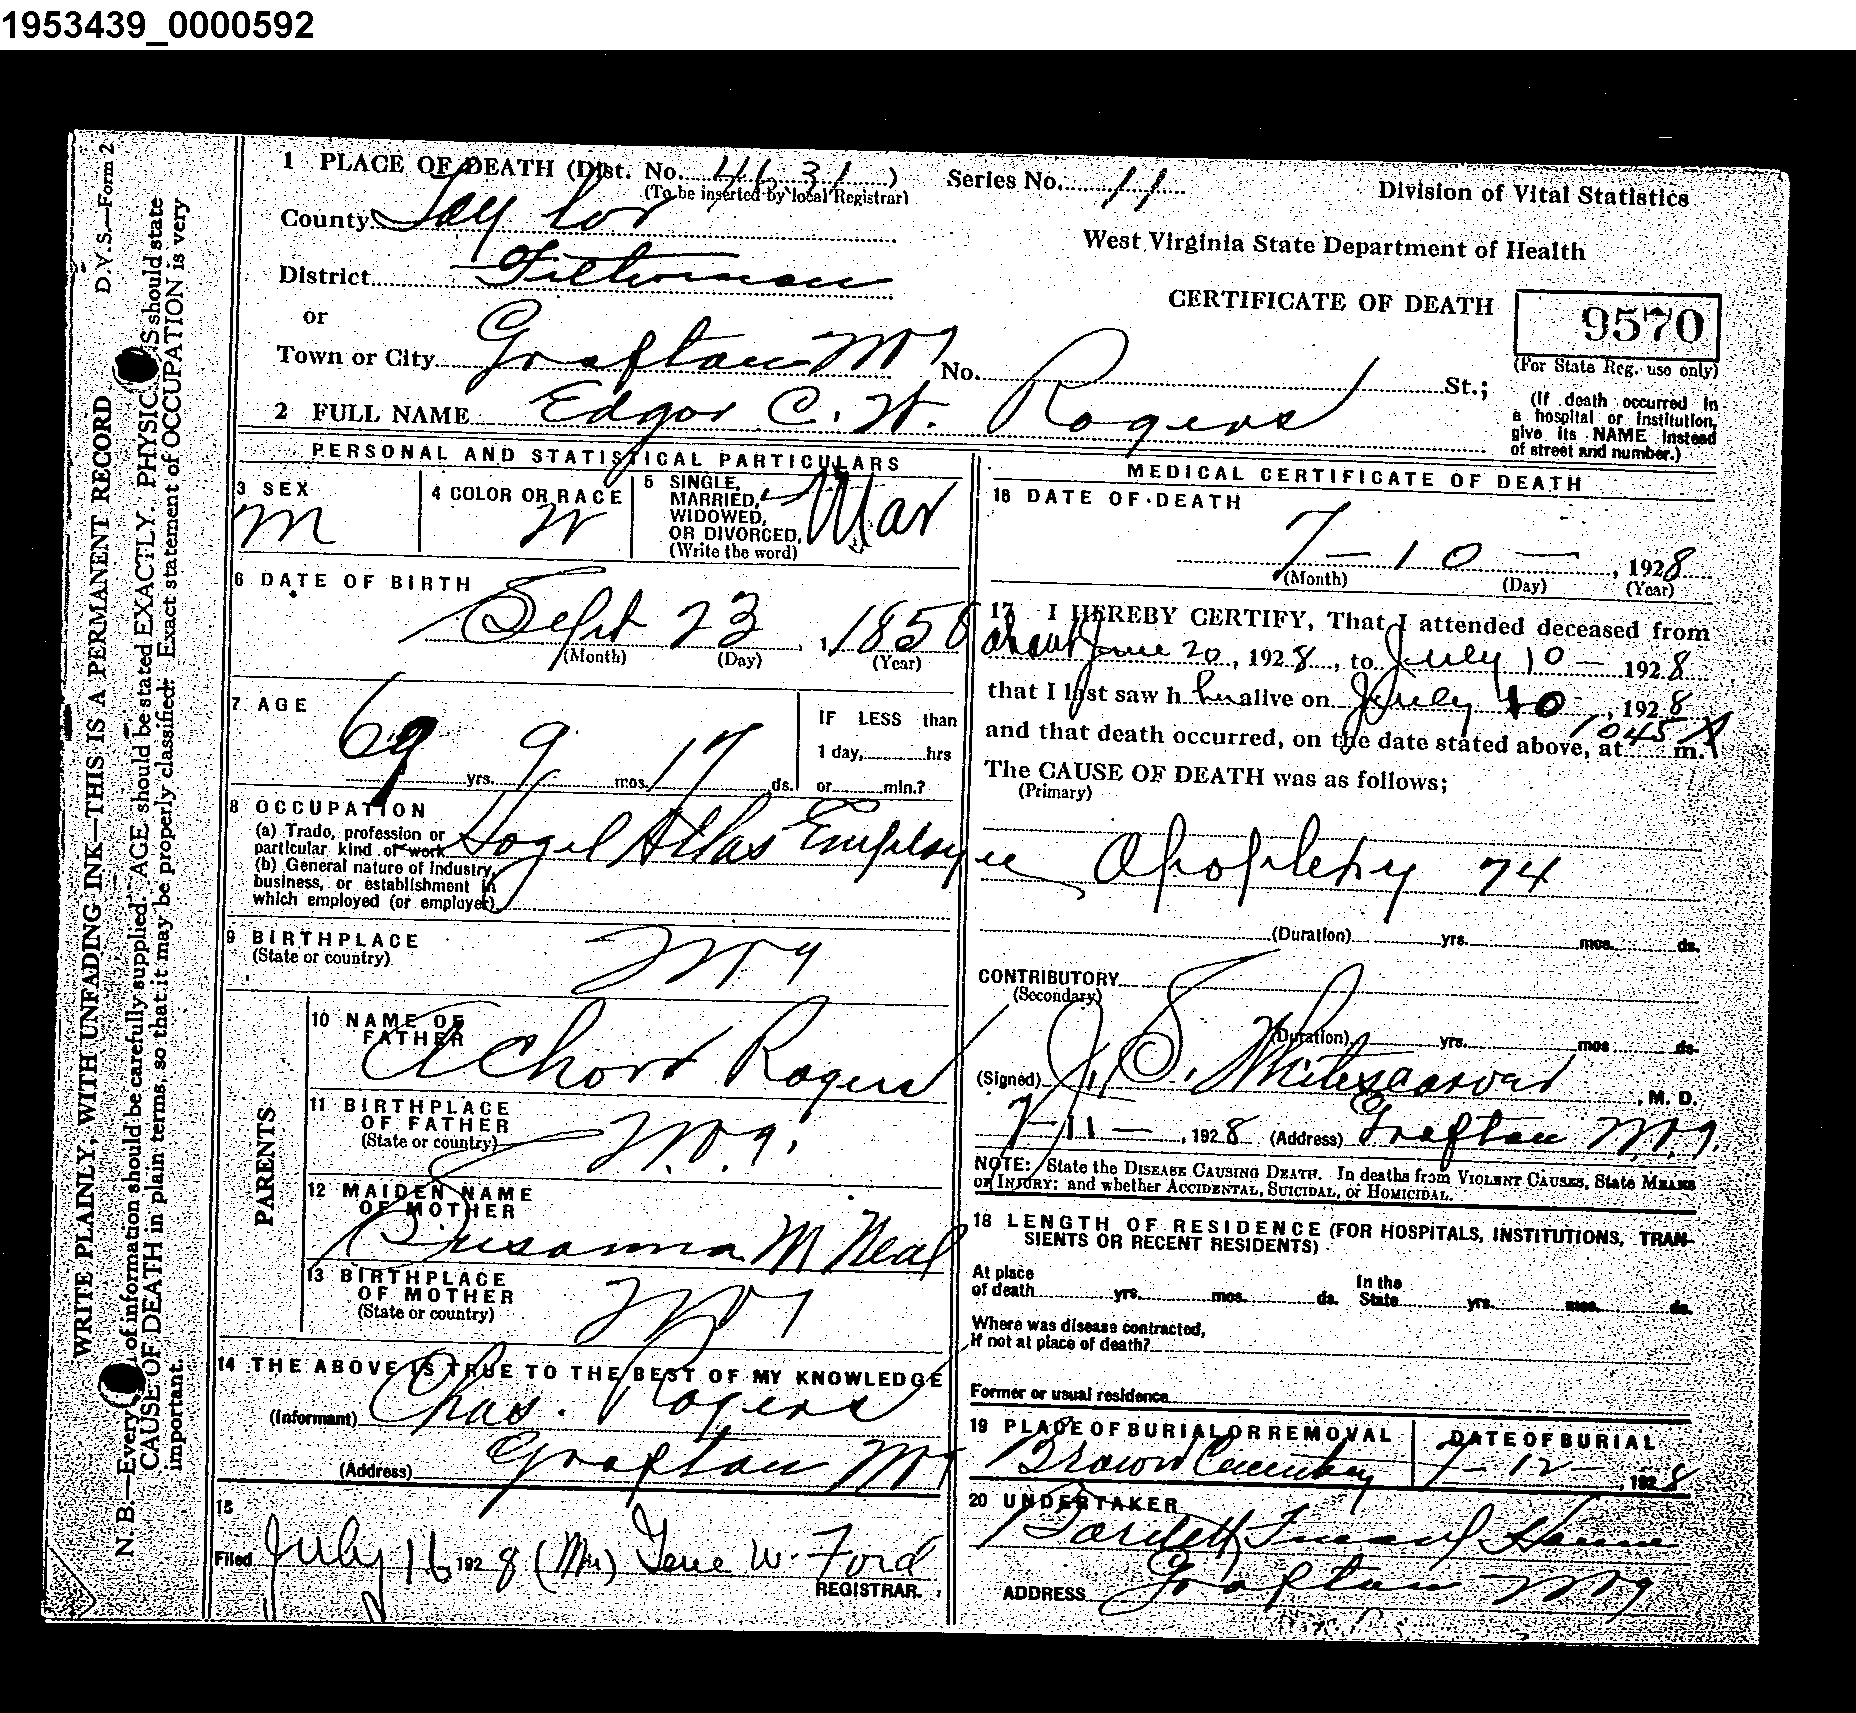 1953439_0000592
D.V.S.—Form 2
WRITE PLAINLY, WITH UNFADING INK—THIS IS A PERMANENT RECORD
N. B.—Every of information should be carefully supplied. AGE should be stated EXACTLY. PHYSIC S should state
CAUSE OF DEATH in plain terms, so that it may be properly classified. Exact statement of OCCUPATION is very
important.
1 PLACE OF DEATH (Dist. No. 4631)
(To be inserted by local Registrar)
Series No. 11
County Taylor
District
or
Town or City Grafton
No. St.;
2 FULL NAME Edgar C. W. Rogers
Division of Vital Statistics
West Virginia State Department of Health
CERTIFICATE OF DEATH
9570
(For State Reg. use only)
(If death occurred in
a hospital or institution,
give its NAME instead
of street and number.)
PERSONAL AND STATISTICAL PARTICULARS
3 SEX
M
4 COLOR OR RACE
W
5 SINGLE,
MARRIED,
WIDOWED,
OR DIVORCED.
(Write the word)
Mar
6 DATE OF BIRTH
Sept 23, 1858
(Month) (Day) (Year)
7 AGE
69 yrs. 9 mos. 17 ds.
IF LESS than
1 day, hrs
or min.?
8 OCCUPATION
(a) Trade, profession or
particular kind of work
Atlas Employee
(b) General nature of industry,
business, or establishment in
which employed (or employer)
9 BIRTHPLACE
(State or country)
PARENTS
10 NAME OF
FATHER
Rogers
11 BIRTHPLACE
OF FATHER
(State or country)
12 MAIDEN NAME
OF MOTHER
Susanna M Neal
13 BIRTHPLACE
OF MOTHER
(State or country)
14 THE ABOVE IS TRUE TO THE BEST OF MY KNOWLEDGE
(Informant) Chas. Rogers
(Address) Grafton
15
Filed July 16 1928 (Mrs) W. Ford
REGISTRAR.
MEDICAL CERTIFICATE OF DEATH
16 DATE OF DEATH
7—10—, 1928
(Month) (Day) (Year)
17 I HEREBY CERTIFY, That I attended deceased from
about June 20, 1928, to July 10— 1928
that I last saw h im alive on July 10, 1928
and that death occurred, on the date stated above, at 1045 A m.
The CAUSE OF DEATH was as follows;
(Primary)
Apoplexy 74
(Duration) yrs. mos. ds.
CONTRIBUTORY
(Secondary)
(Duration) yrs. mos. ds.
(Signed) Whitescarver, M. D.
7-11—, 1928 (Address) Grafton
NOTE: State the DISEASE CAUSING DEATH. In deaths from VIOLENT CAUSES, State MEANS
OF INJURY: and whether ACCIDENTAL, SUICIDAL, or HOMICIDAL.
18 LENGTH OF RESIDENCE (FOR HOSPITALS, INSTITUTIONS, TRAN-
SIENTS OR RECENT RESIDENTS)
At place
of death yrs. mos. ds.
In the
State yrs. mos. ds.
Where was disease contracted,
if not at place of death?
Former or usual residence
19 PLACE OF BURIAL OR REMOVAL
Brown Cemetery
DATE OF BURIAL
7-12-, 1928
20 UNDERTAKER
Bartlett Funeral Home
ADDRESS Grafton